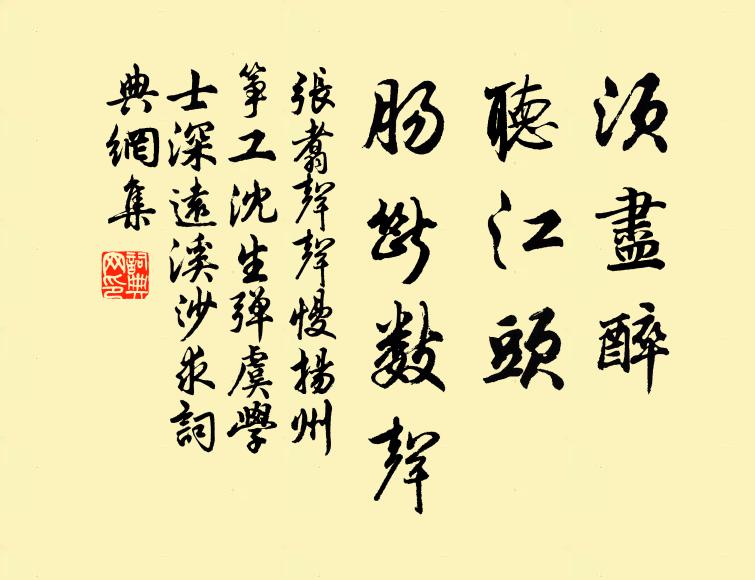 須盡醉
聽江頭
腸斷數聲
張翥聲聲慢揚州
箏工沈生彈虞學
士深遠溪沙求詞
典網集
詞典網印